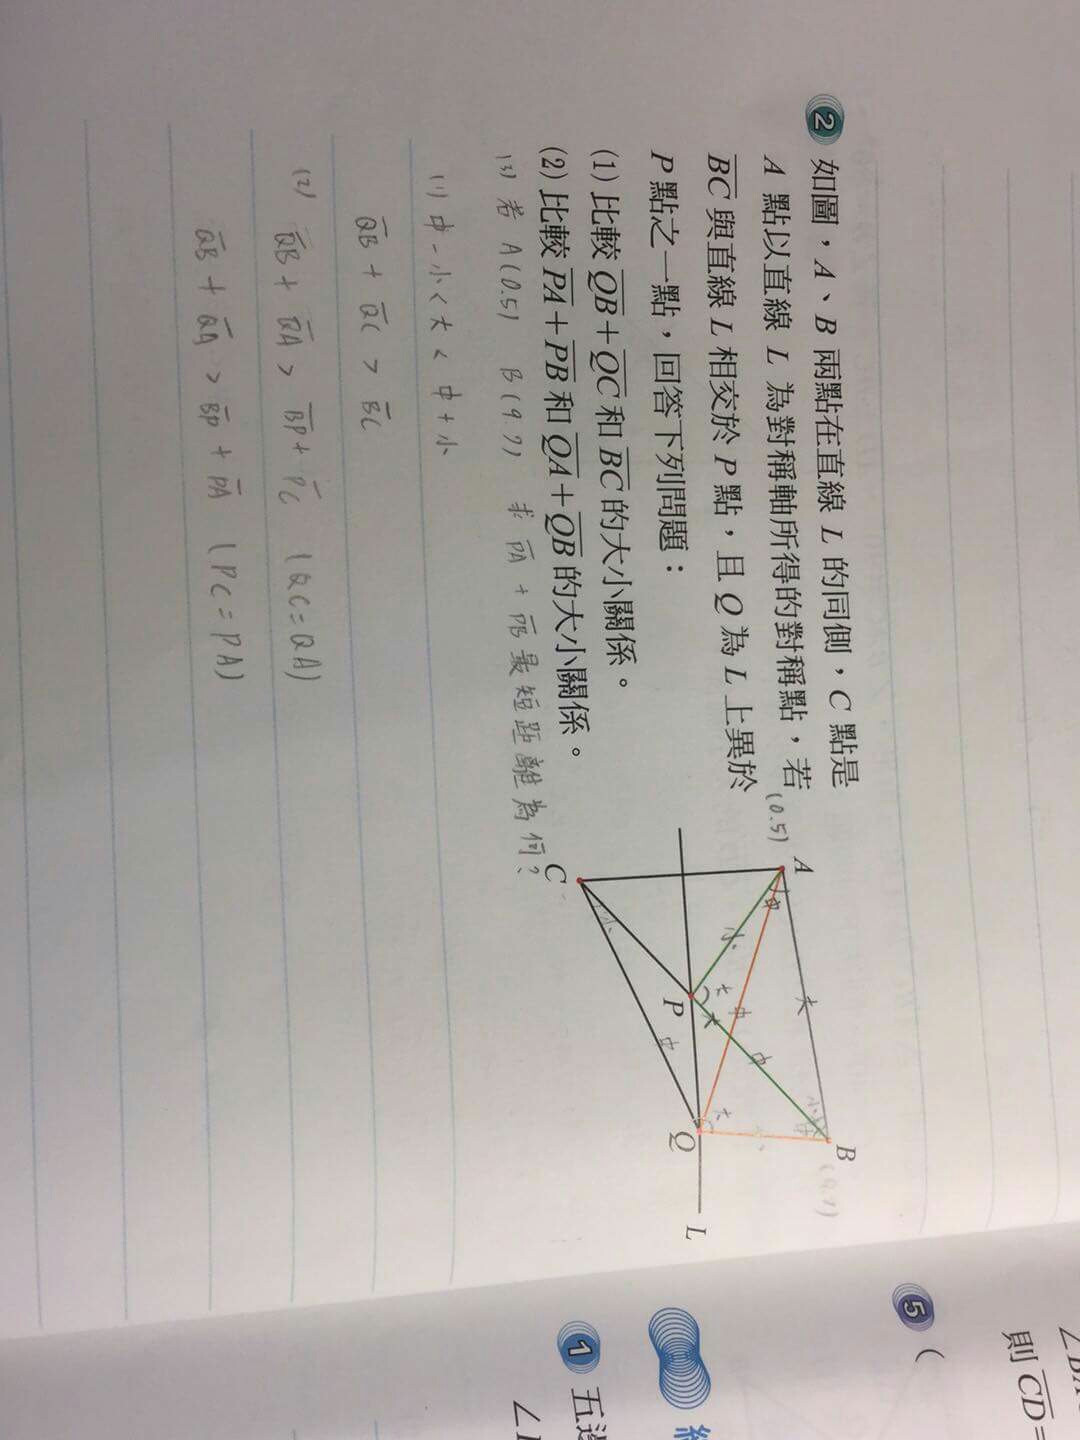 2 如圖，A、B 兩點在直線 L 的同側，C 點是
A 點以直線 L 為對稱軸所得的對稱點，若
BC 與直線 L 相交於 P 點，且 Q 為 L 上異於
P 點之一點，回答下列問題：
(1) 比較 QB＋QC 和 BC 的大小關係。
(2) 比較 PA＋PB 和 QA＋QB 的大小關係。
(3) 若 A(0.5) B(9.7) 求 PA + PB 最短距離為何？
(1) 中-小<大<中+小
QB + QC > BC
(2) QB + QA > BP + PC (QC=QA)
QB + QA > BP + PA (PC=PA)
(0.5)
A
中
大
小
B
小
大
中
中
大
P
大
C
小
中
Q
L
5 (
則 CD=
1 五邊